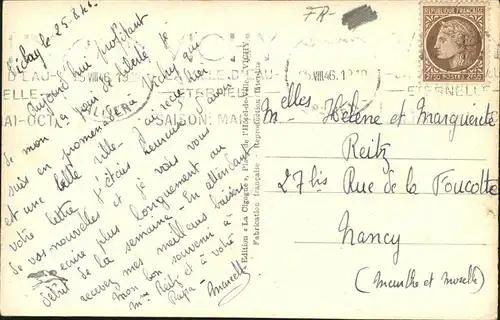 Vichy le 25.8.46.
Aujourd'hui profitant
de mon jour de liberté je
suis en promenade à Vichy qui
est une belle ville. J'ai reçu hier
votre lettre j'étais heureux d'avoir
de vos nouvelles et je vais vous
écrire plus longuement au
début de la semaine. En attendant
recevez mes meilleurs baisers
mon bon souvenir à
Mme Reitz et à votre
Papa. Marcel
Edition « La Cigogne » Place de l'Hôtel-de-Ville, VICHY
Fabrication française - Reproduction interdite
FR-
VICHY
D'EAU
VIII 46
ELLE
ETERNELLE
MAI-OCT
ALLIER
SAISON: MAI
25 VIII 46
ETERNELLE
REPUBLIQUE FRANÇAISE
2F50 POSTES 2F50
Melles Hélène et Marguerite
Reitz
27 bis Rue de la Foucotte
Nancy
(Meurthe et Moselle)